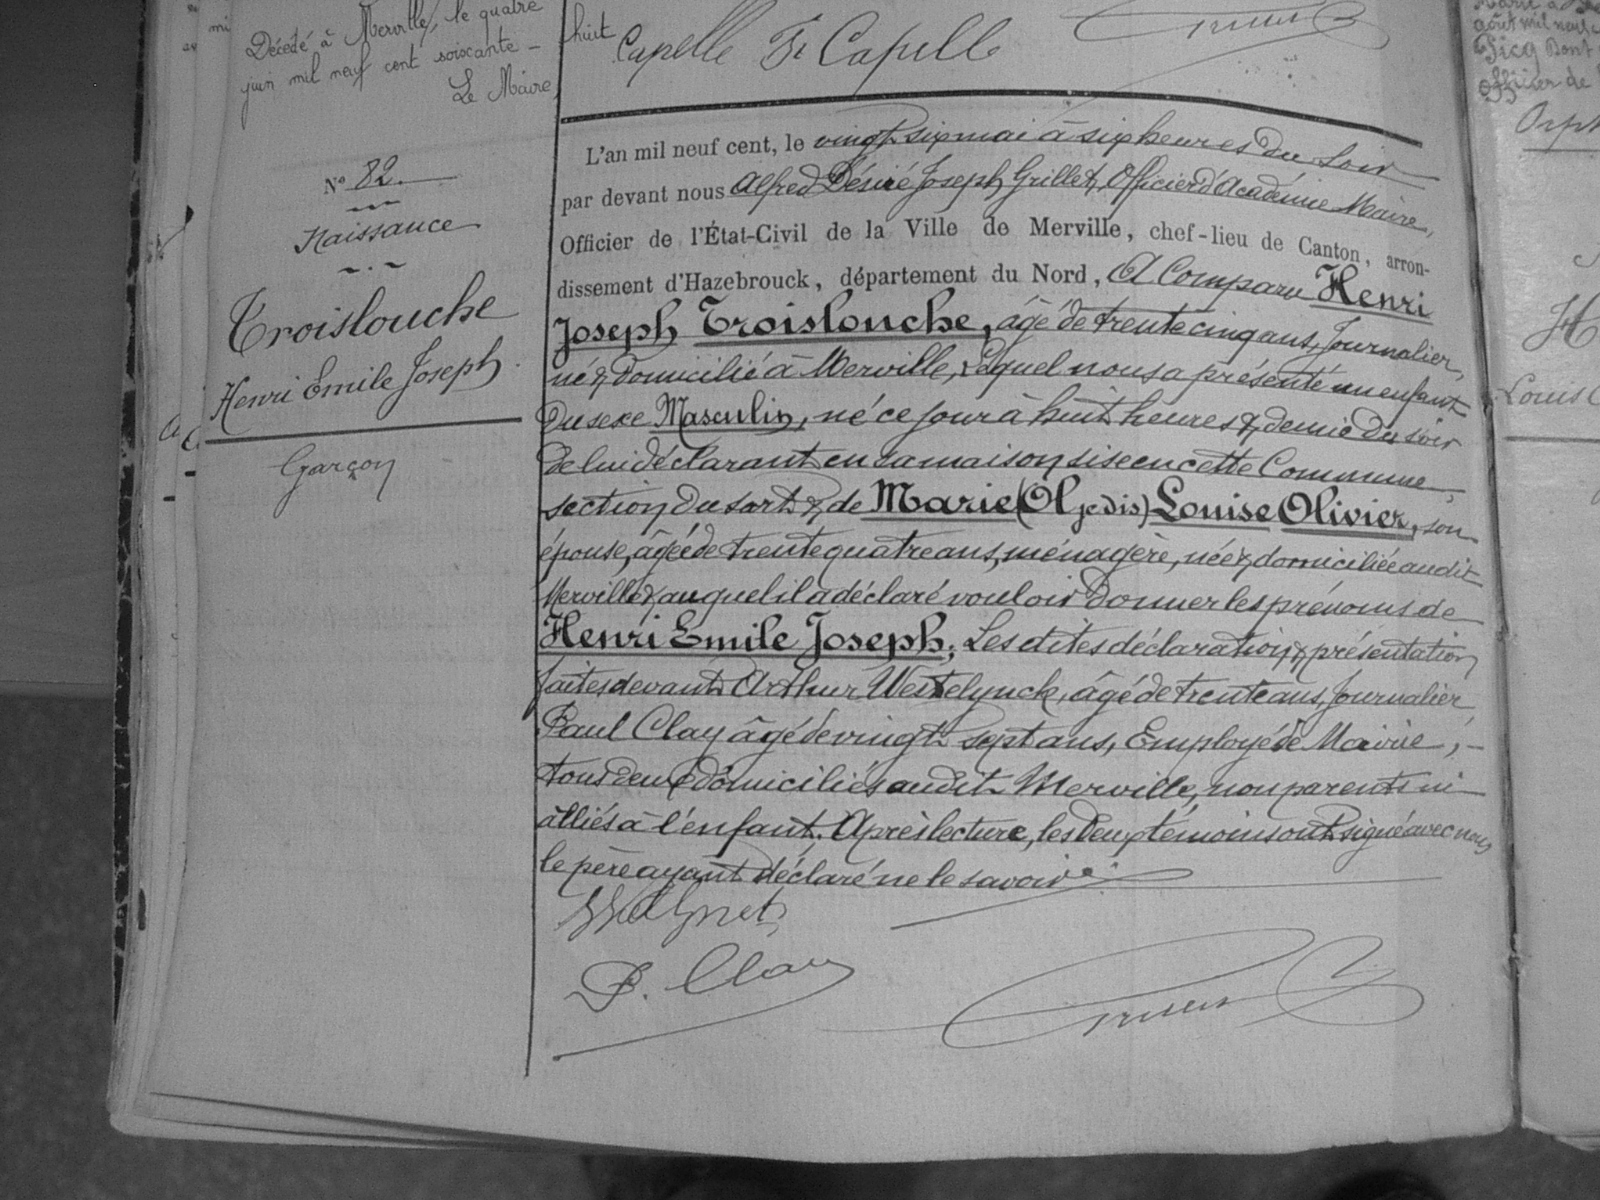 Décédé à Merville, le quatre
juin mil neuf cent soixante-
Le Maire,
huit
Capelle Fs Capell
N° 82.
Naissance
Troislouche
Henri Emile Joseph
Garçon
L'an mil neuf cent, le vingt six mai à six heures du soir
par devant nous Alfred Désiré Joseph Grillet, Officier d'Académie Maire,
Officier de l'État-Civil de la Ville de Merville, chef-lieu de Canton, arron-
dissement d'Hazebrouck, département du Nord, A Comparu Henri
Joseph Troislouche, âgé de trente cinq ans, Journalier,
né & domicilié à Merville, Lequel nous a présenté un enfant
du sexe Masculin, né ce jour à huit heures & demie du soir
de lui déclarant en sa maison sise en cette Commune,
section du sart & de Marie (Ol je dis) Louise Olivier, son
épouse, âgée de trente quatre ans, ménagère, née & domiciliée audit
Merville & auquel il a déclaré vouloir donner les prénoms de
Henri Emile Joseph; Les dites déclaration & présentation
faites devant Arthur Westelynck, âgé de trente ans, Journalier,
Paul Clay âgé de vingt sept ans, Employé de Mairie,
tous deux domiciliés audit Merville, non parents ni
alliés à l'enfant. Après lecture, les deux témoins ont signé avec nous
le père ayant déclaré ne le savoir.
P. Clay
août mil neuf
Picq Dont
Officier de
Orph
H
Louis C